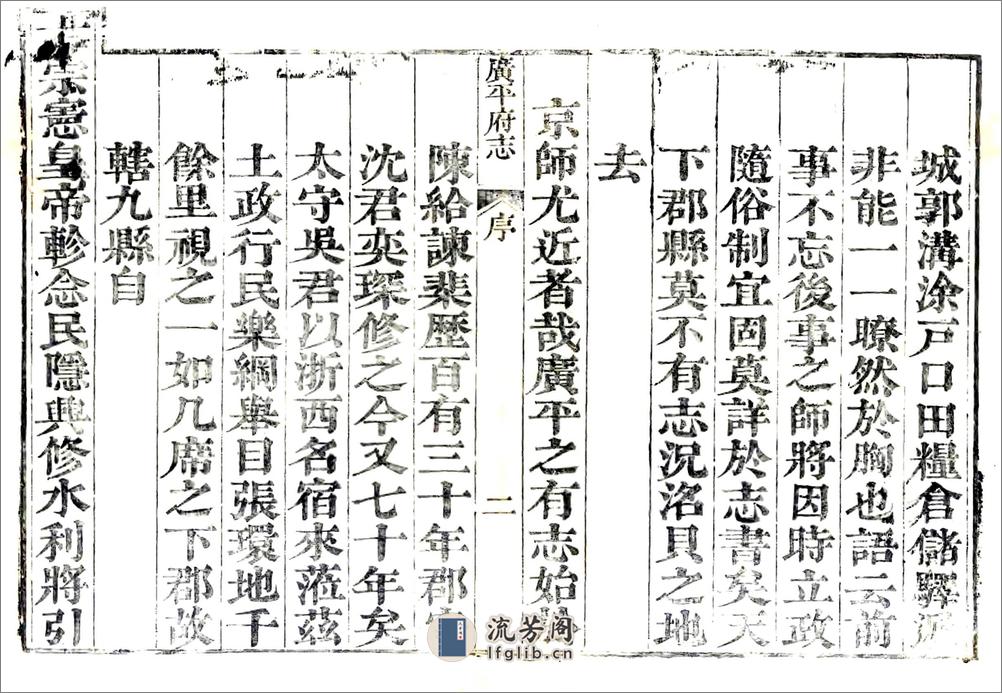 城郭溝涂戸口田糧倉儲驛遞
非能一一瞭然於胸也語云前
事不忘後事之師將因時立政
隨俗制宜固莫詳於志書矣天
下郡縣莫不有志況洺貝之地
去
京師尤近者哉廣平之有志始
廣平府志
序
二
陳給諫棐歴百有三十年郡
沈君奕琛修之今又七十年矣
太守吳君以浙西名宿來蒞兹
土政行民樂綱舉目張環地千
餘里視之一如几席之下郡故
轄九縣自
宗憲皇帝軫念民隱興修水利將引
流芳阁
lfglib.cn